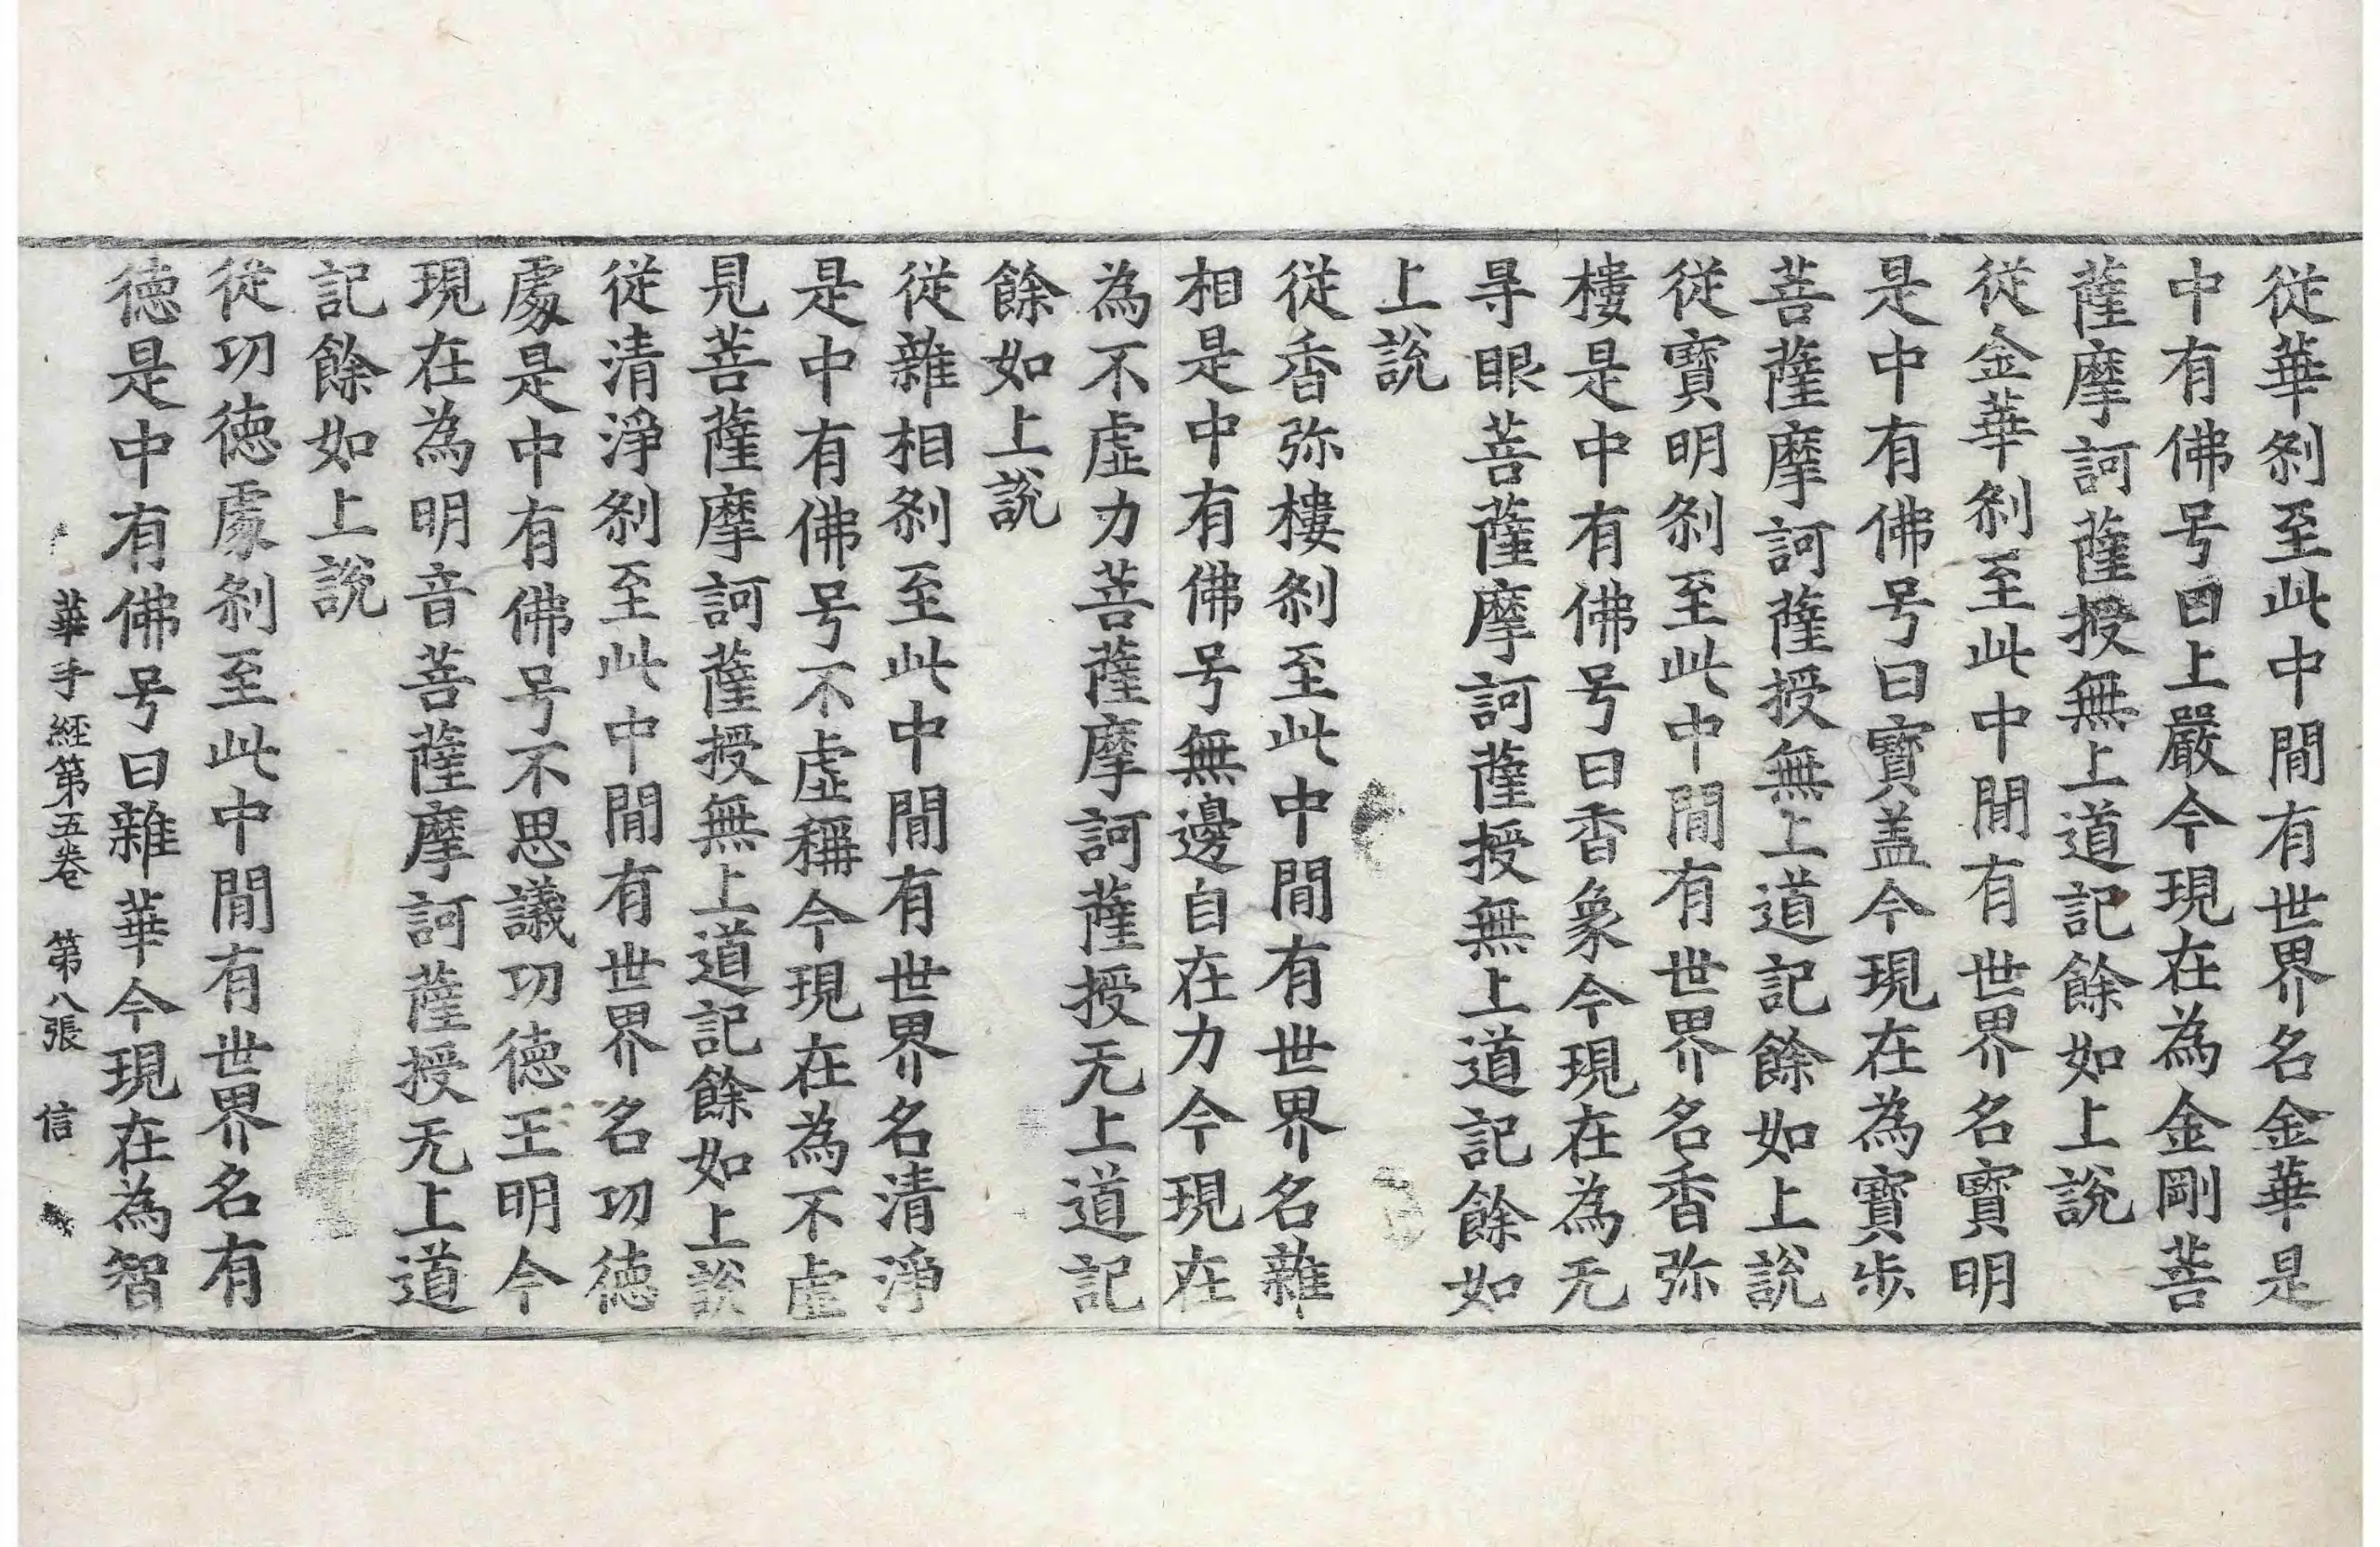 從華剎至此中閒有世界名金華是
中有佛号曰上嚴今現在為金剛菩
薩摩訶薩授無上道記餘如上說
從金華剎至此中閒有世界名寶明
是中有佛号曰寶盖今現在為寶步
菩薩摩訶薩授無上道記餘如上說
從寶明剎至此中閒有世界名香弥
樓是中有佛号曰香象今現在為无
㝵眼菩薩摩訶薩授無上道記餘如
上說
從香弥樓剎至此中閒有世界名雜
相是中有佛号無邊自在力今現在
為不虛力菩薩摩訶薩授无上道記
餘如上說
從雜相剎至此中閒有世界名清淨
是中有佛号不虛稱今現在為不虛
見菩薩摩訶薩授無上道記餘如上說
從清淨剎至此中閒有世界名功德
處是中有佛号不思議功德王明今
現在為明音菩薩摩訶薩授无上道
記餘如上說
從功德處剎至此中閒有世界名有
德是中有佛号曰雜華今現在為智
華手經第五卷 第八張 信